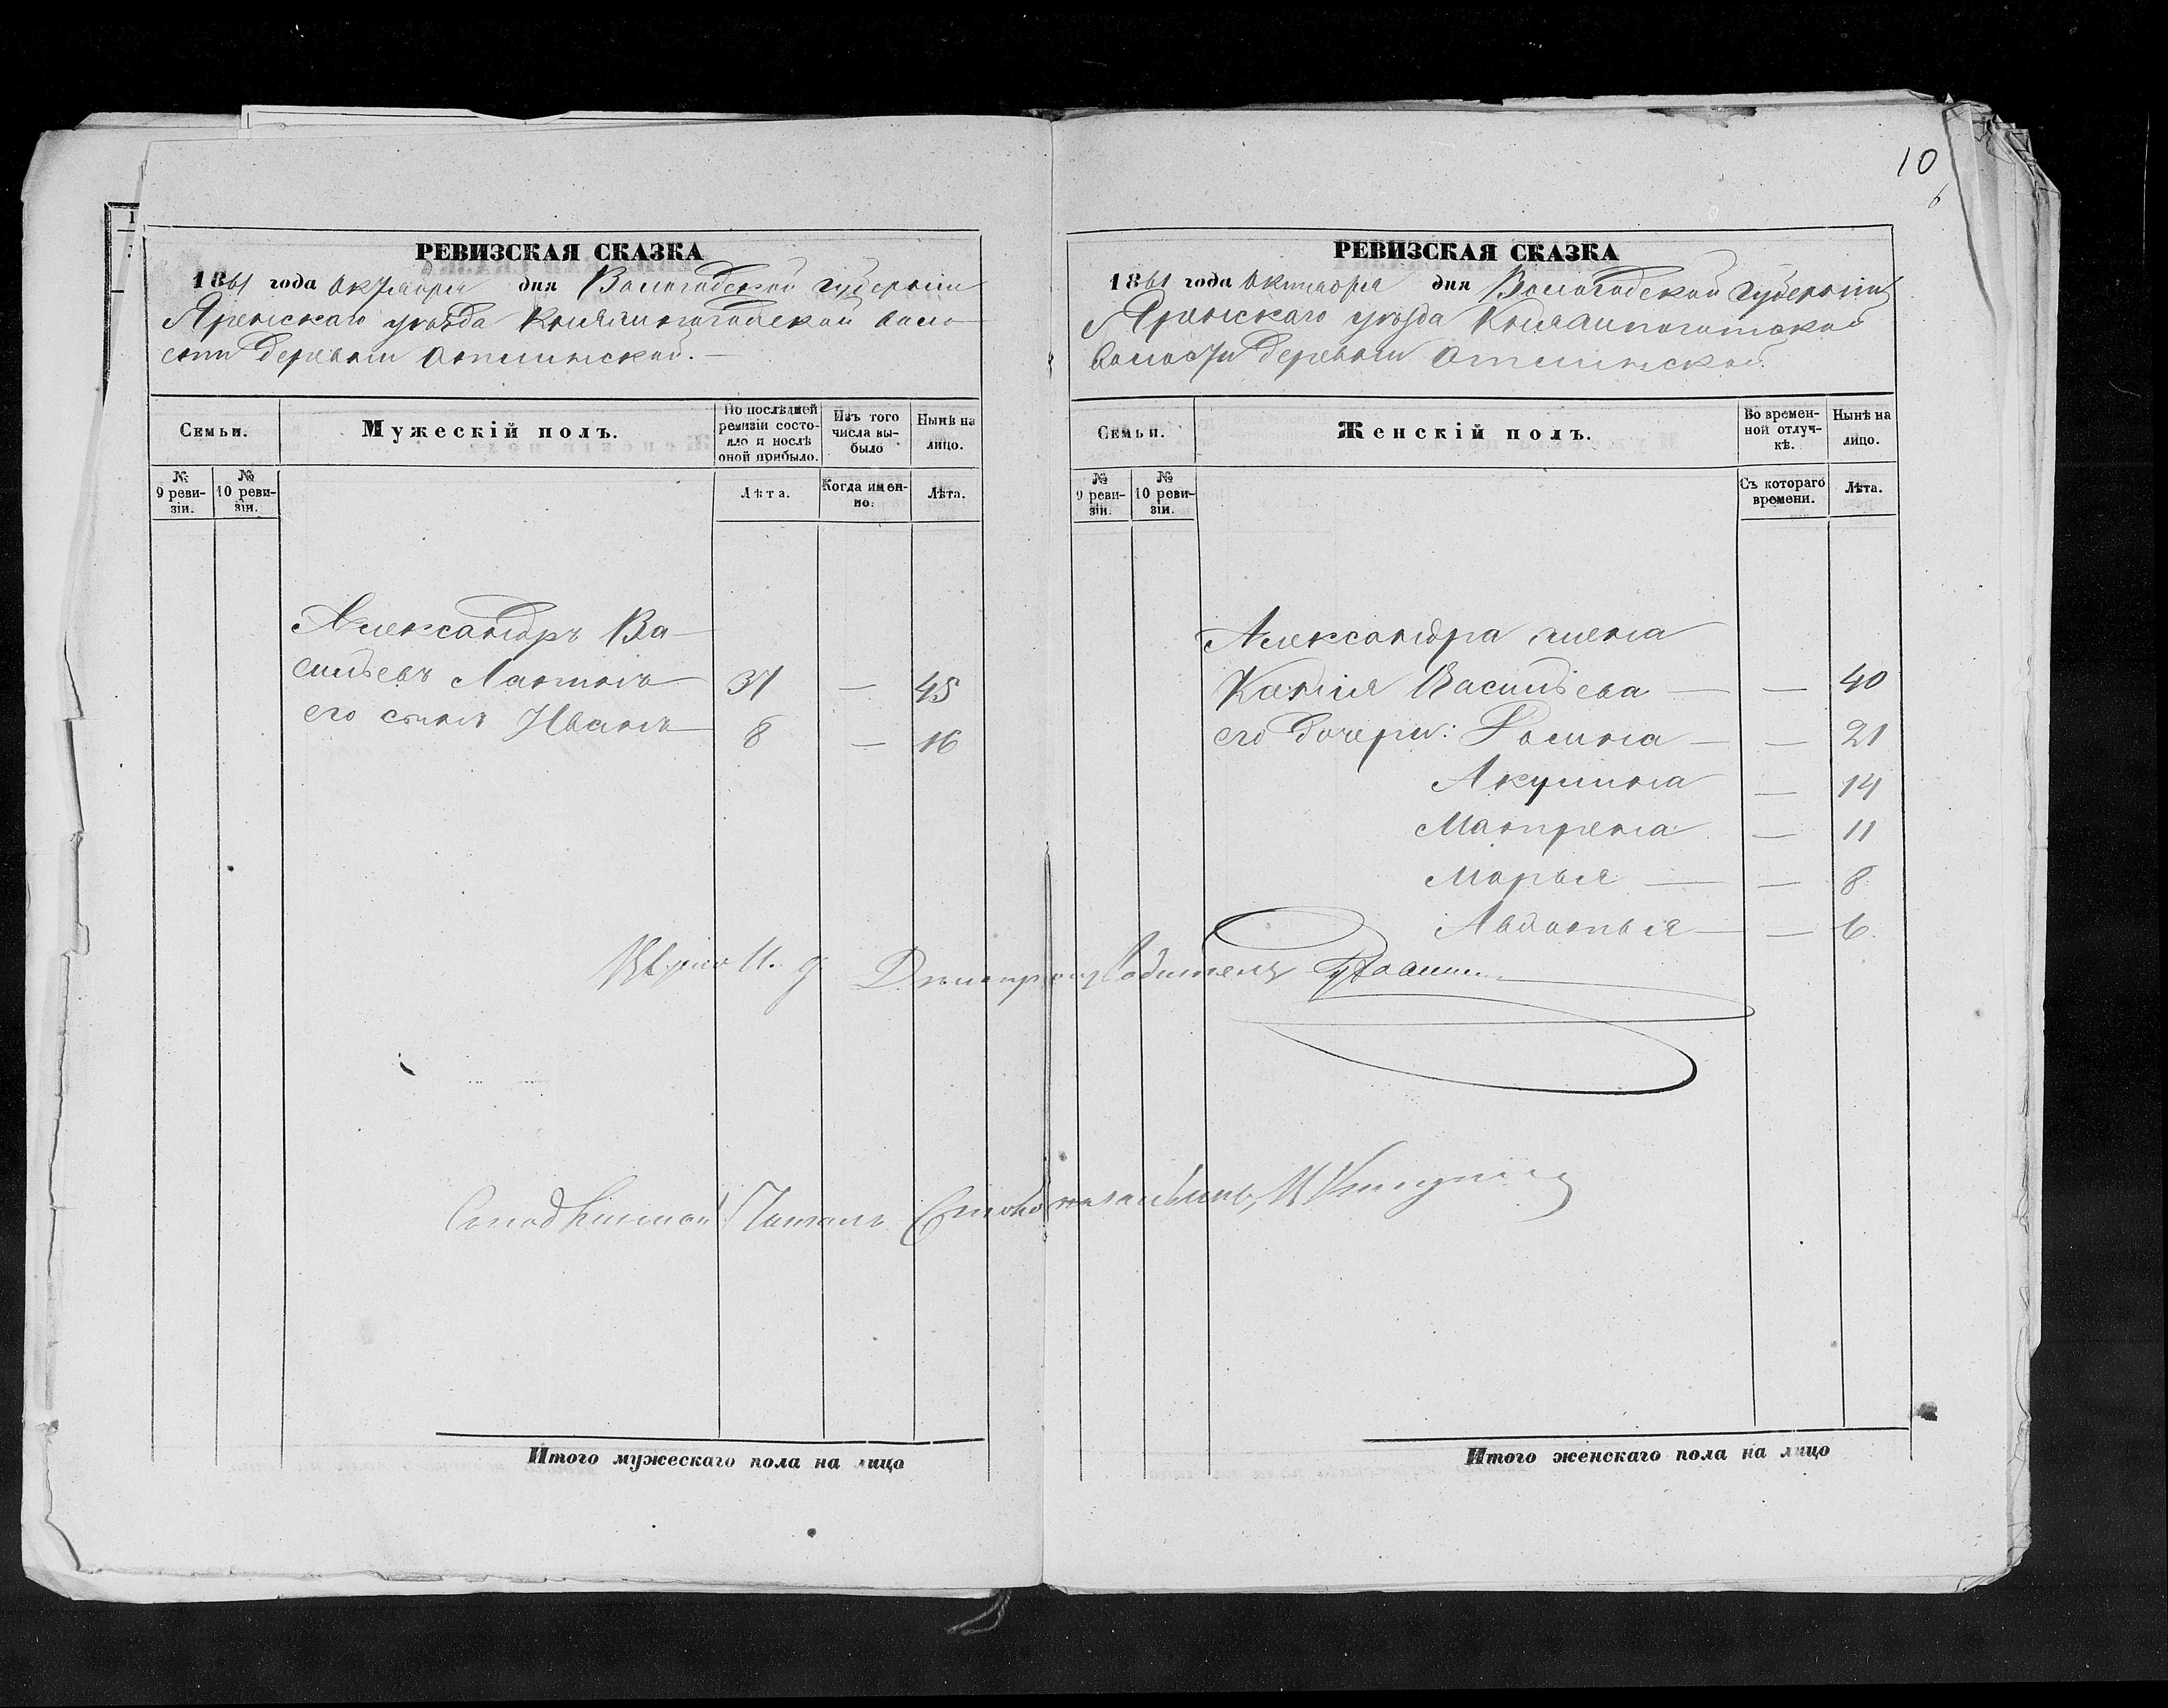 РЕВИЗСКАЯ СКАЗКА
1861 года Октября дня Вологодской губерніи
Яренскаго уѣзда Княжпогостской воло-
сти деревни
Семьи.
Мужескій полъ.
По послѣдней ревизіи состо-
яло и послѣ
оной прибыло.
Изъ того
числа вы-
было
Нынѣ на
лицо.
№
9 реви-
зіи.
№
10 реви-
зіи.
Лѣта.
Когда имен-
но.
Лѣта.
Александръ Ва-
сильевъ 37 — 45
его сынъ Иванъ 8 — 16
Итого мужескаго пола на лицо
10
РЕВИЗСКАЯ СКАЗКА
1861 года Октября дня Вологодской губерніи
Яренскаго уѣзда Княжпогостской
волости деревни
Семьи.
Женскій полъ.
Во времен-
ной отлуч-
кѣ.
Нынѣ на
лицо.
№
9 реви-
зіи.
№
10 реви-
зіи.
Съ котораго
времени.
Лѣта.
Александра жена
Васильева — — 40
его дочери: — — 21
Акулина — 14
Матрена — 11
Марья — — 8
Авдотья — — 6
Вѣрно И. д. Дѣлопроизводитель
Итого женскаго пола на лицо